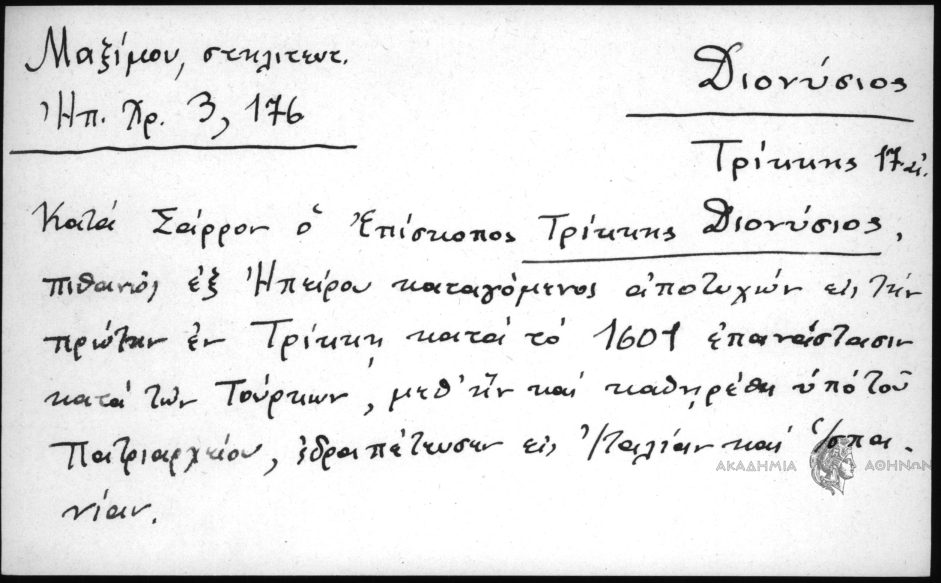 Μαξίμου, στηλιτευτ.
Ἠπ. Χρ. 3, 176
Διονύσιος
Τρίκκης 17 αἰ.
Κατά Σάρρον ὁ Ἐπίσκοπος Τρίκκης Διονύσιος,
πιθανῶς ἐξ Ἠπείρου καταγόμενος ἀποτυχών εἰς τήν
πρώτην ἐν Τρίκκῃ κατά τό 1601 ἐπανάστασιν
κατά τῶν Τούρκων, μεθ' ἥν καί καθῃρέθη ὑπό τοῦ
Πατριαρχείου, ἐδραπέτευσεν εἰς Ἰταλίαν καί Ἱσπα-
νίαν.
ΑΚΑΔΗΜΙΑ ΑΘΗΝΩΝ